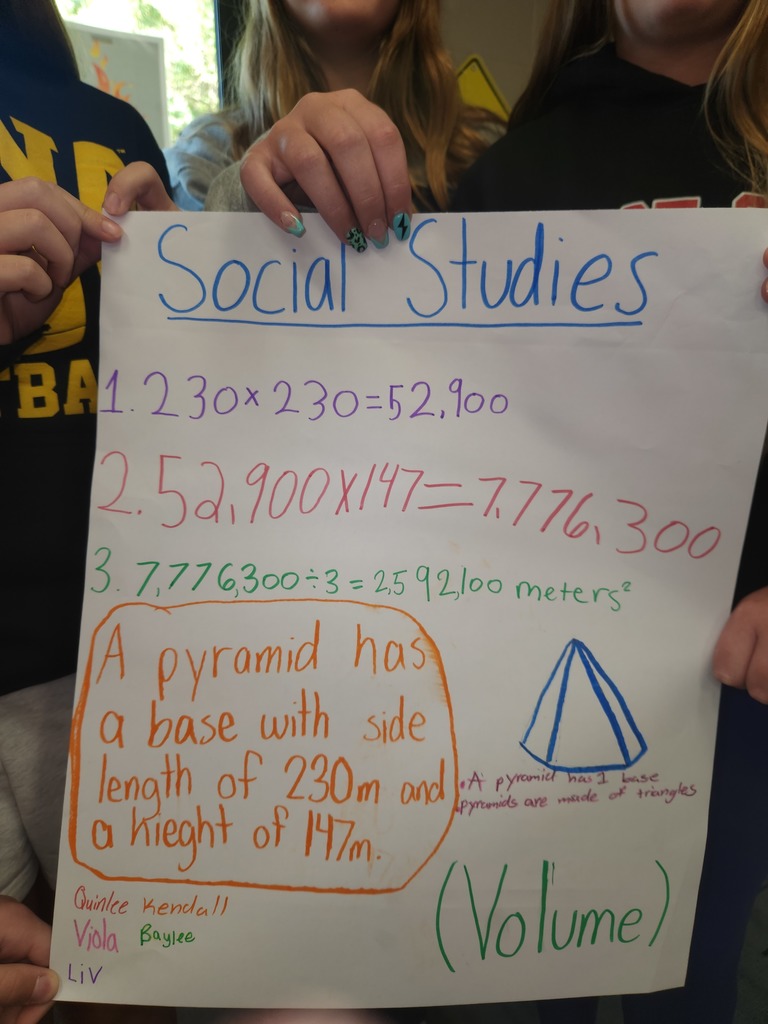 Social Studies
1. 230 x 230 = 52,900
2. 52,900 x 147 = 7,776,300
3. 7,776,300 ÷ 3 = 2,592,100 meters²
A pyramid has
a base with side
length of 230m and
a hieght of 147m.
• A pyramid has 1 base
• pyramids are made of triangles
(Volume)
Quinlee Kendall
Viola Baylee
LiV